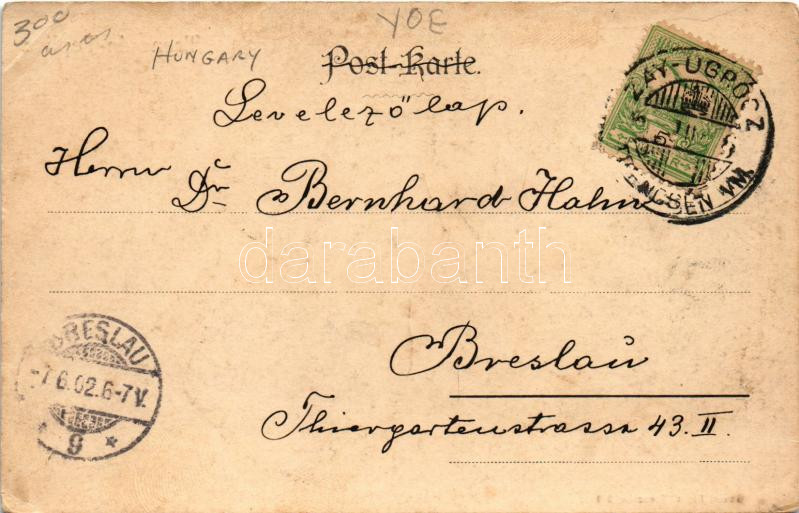 300
YOE
HUNGARY
Post-Karte.
Levelezőlap.
ZAY-UGRÓCZ
TRENCSÉN VM.
Herrn
Dr Bernhard Hahn
darabanth
BRESLAU
-7.6.02.6-7V.
9 *
Breslau
Thiergartenstrasse 43. II.